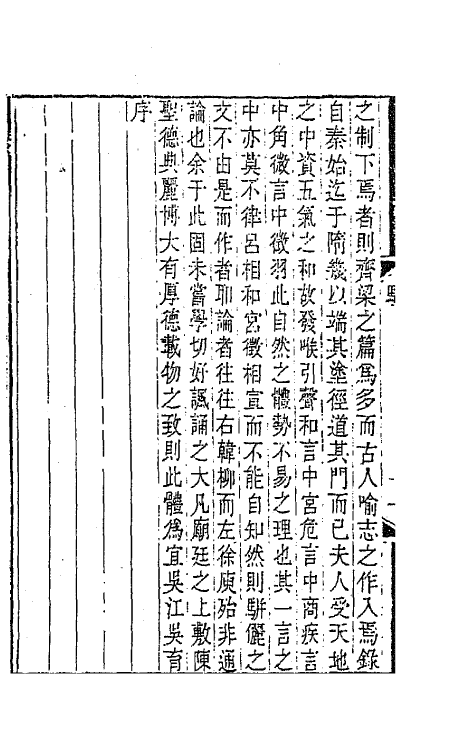 之制下焉者則齊梁之篇爲多而古人喻志之作入焉錄
自秦始迄于隋幾以端其塗徑道其門而已夫人受天地
之中資五氣之和故發喉引聲和言中宮危言中商疾言
中角微言中徵羽此自然之體勢不易之理也其一言之
中亦莫不律呂相和宮徵相宣而不能自知然則駢儷之
文不由是而作者耶論者往往右韓柳而左徐庾殆非通
論也余于此固未嘗學切好諷誦之大凡廟廷之上敷陳
聖德典麗博大有厚德載物之致則此體爲宜吳江吳育
序